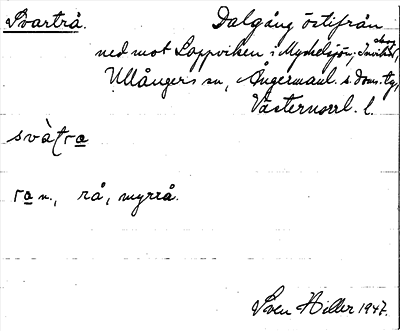 Svartrå. Dalgång östifrån
ned mot Lappviken i Myckelsjön,
Ullångers sn, Ångermanl. s. doms. tg,
Västernorrl. l.
svàtra
ra n., rå, myrrå.
Sven Hiller 1947.